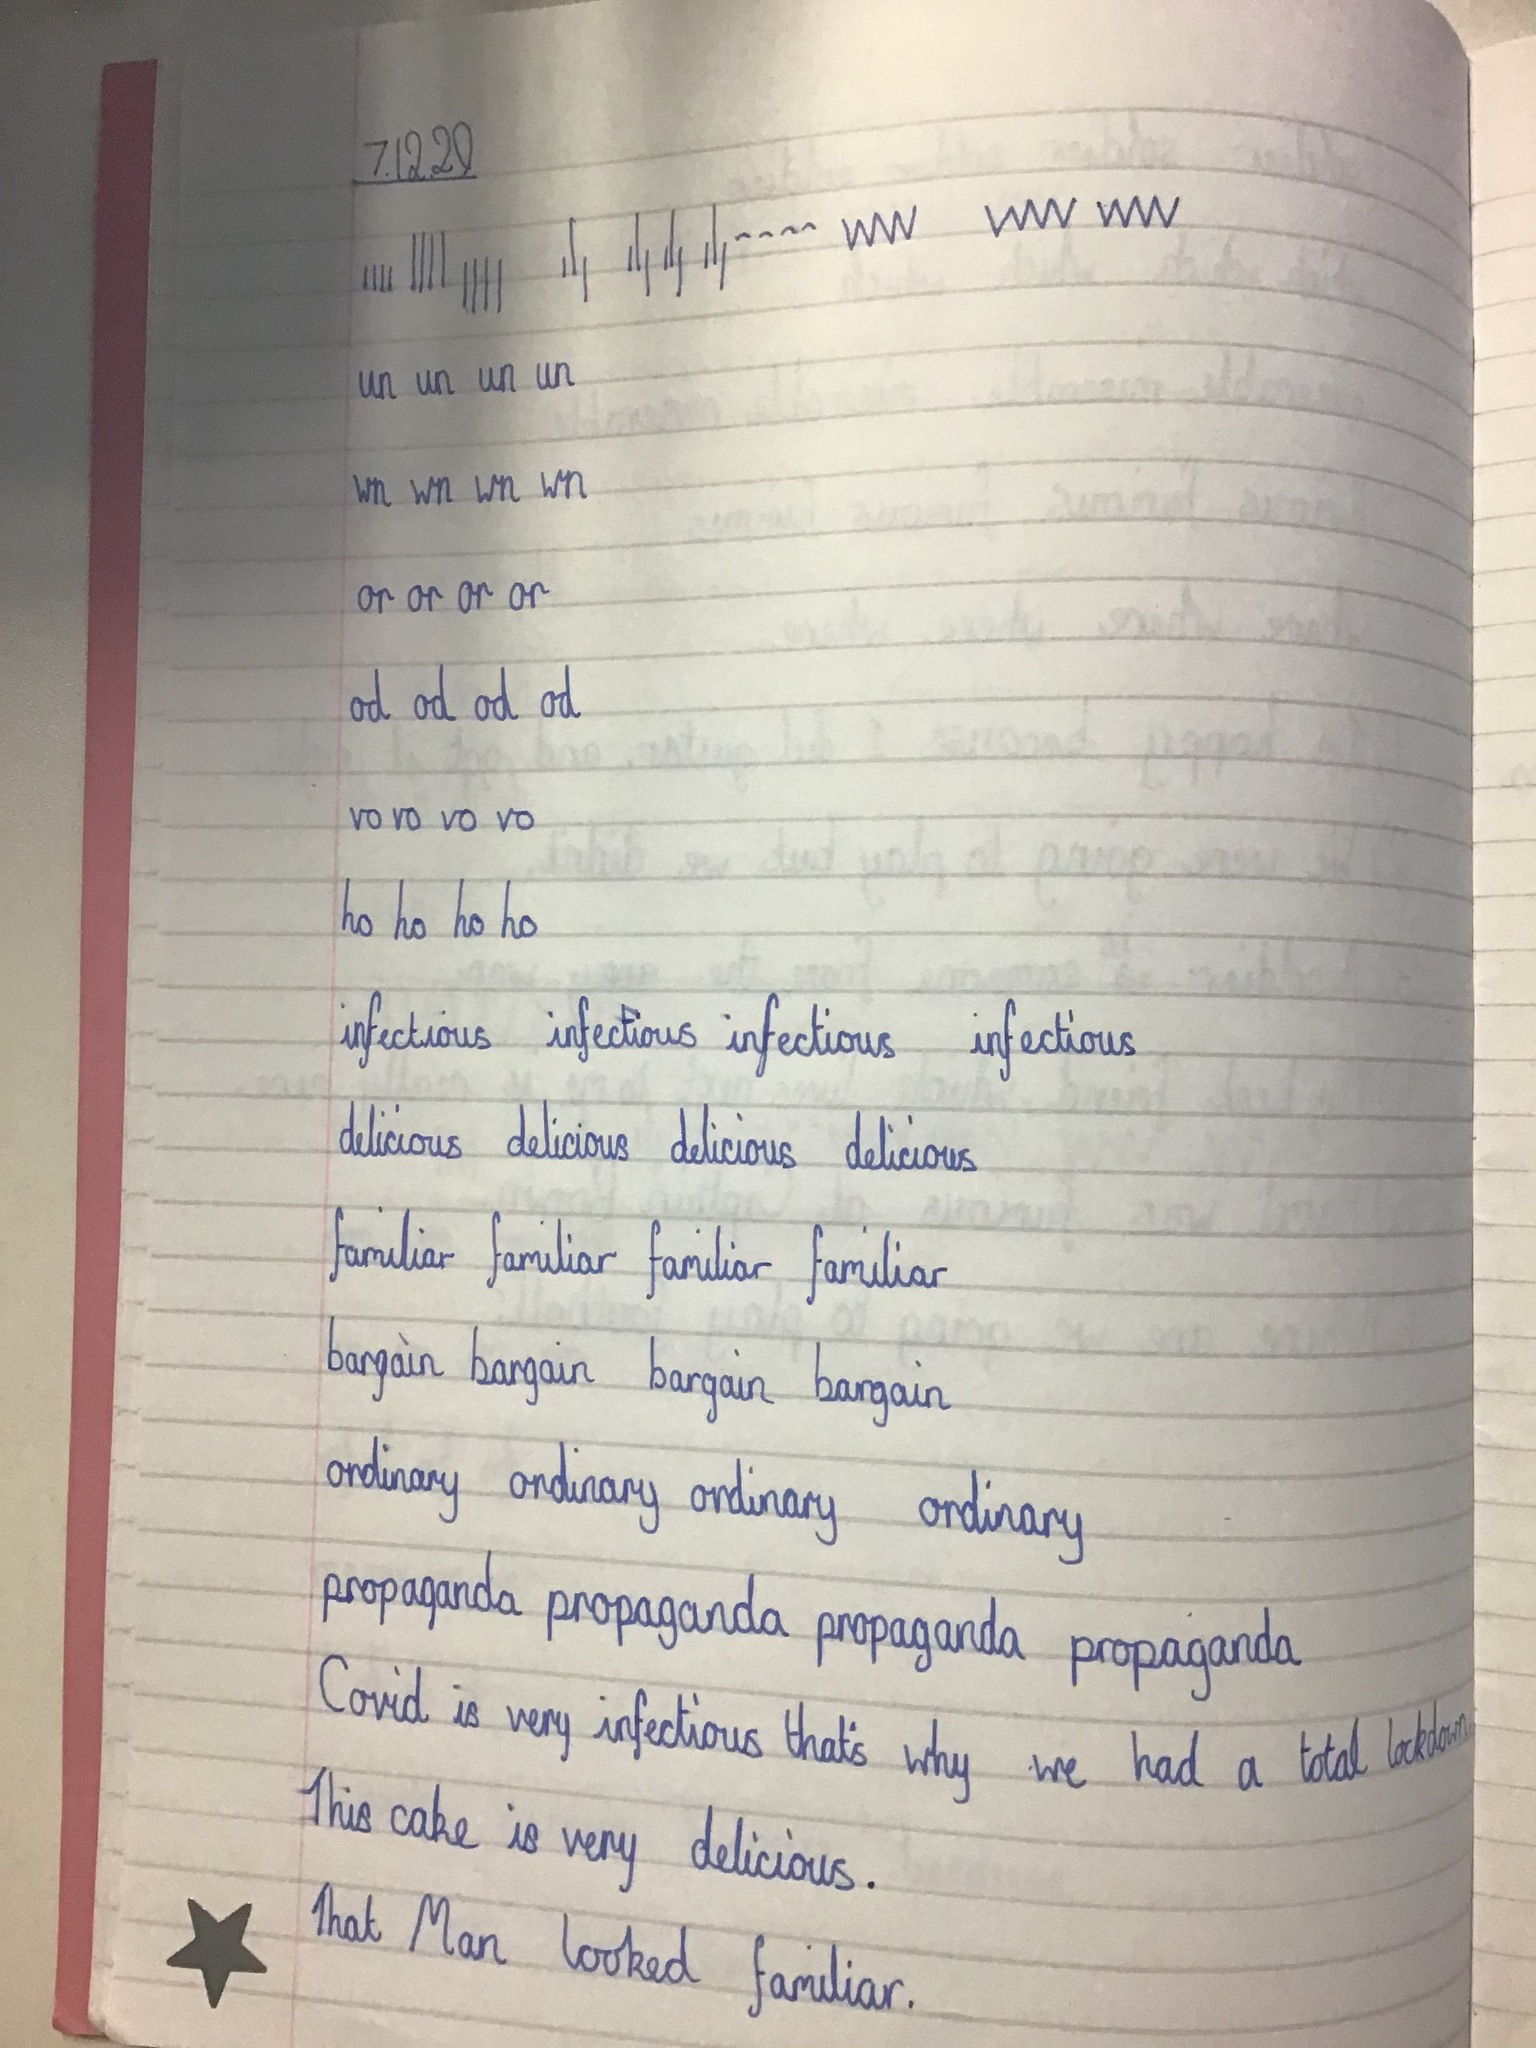 7.12.20
un un un un
wn wn wn wn
or or or or
od od od od
vo vo vo vo
ho ho ho ho
infectious infectious infectious infectious
delicious delicious delicious delicious
familiar familiar familiar familiar
bargain bargain bargain bargain
ordinary ordinary ordinary ordinary
propaganda propaganda propaganda propaganda
Covid is very infectious that's why we had a total lockdown
This cake is very delicious.
That Man looked familiar.